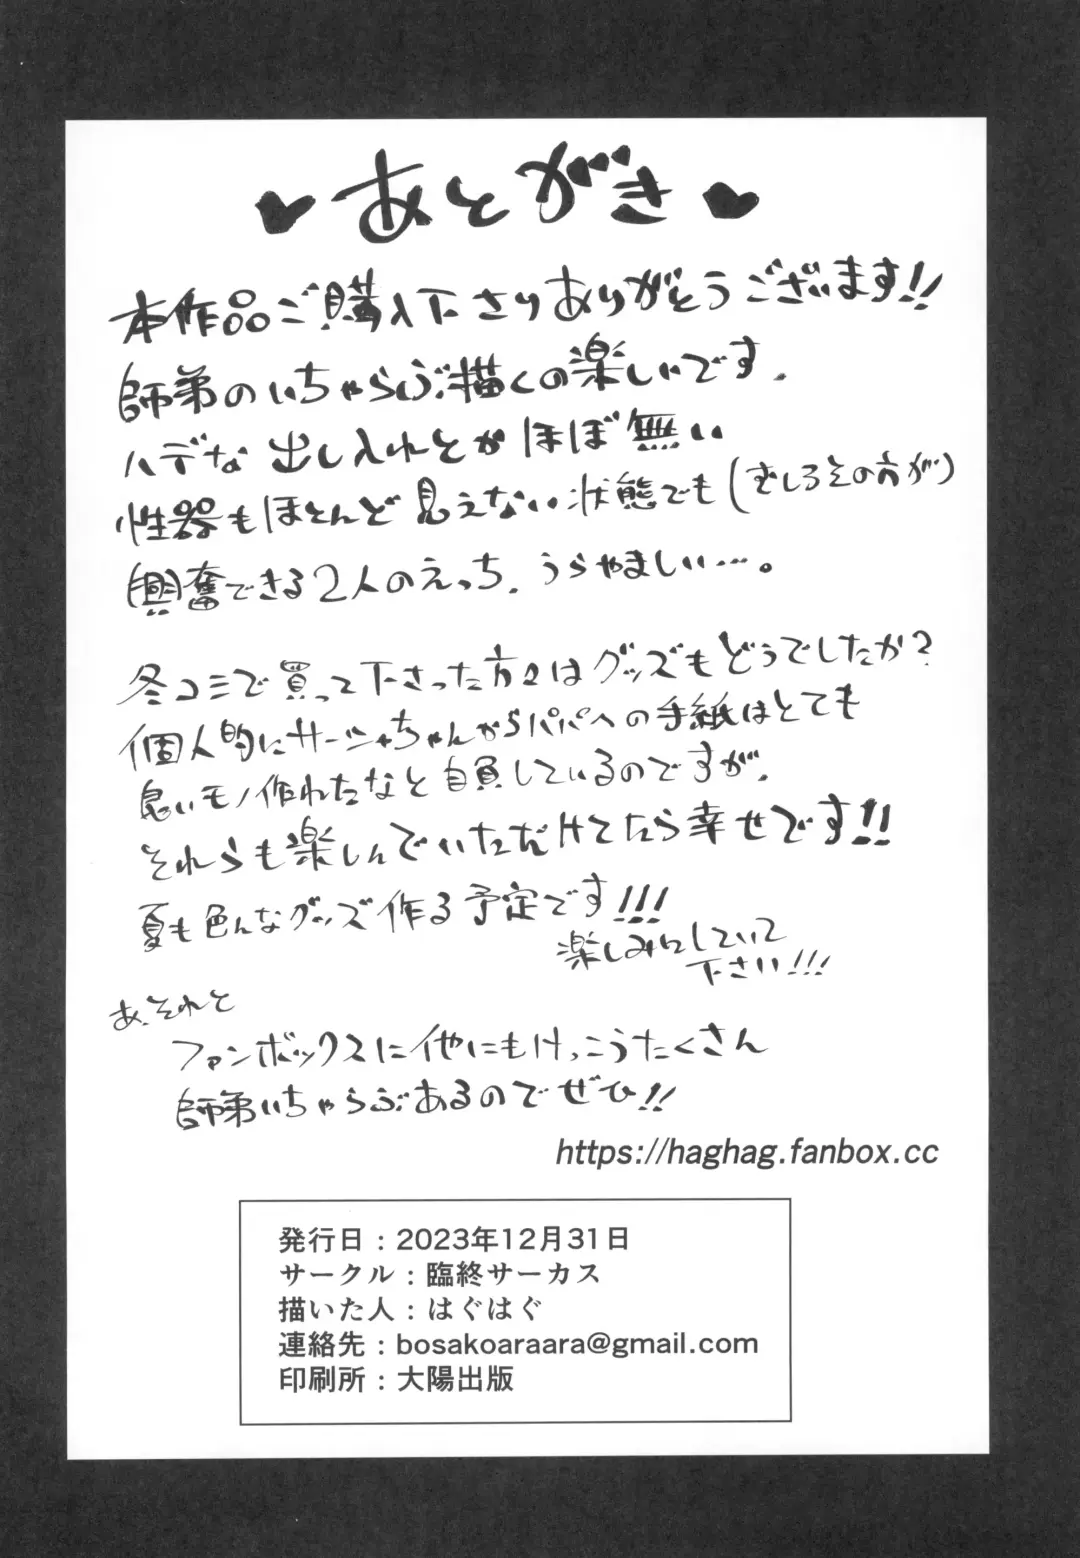 あとがき
本作品ご購入下さりありがとうございます!!
師弟のいちゃらぶ描くの楽しいです。
ハデな出し入れとかほぼ無い
性器もほとんど見えない状態でも(むしろその方が)
興奮できる2人のえっち。うらやましい…。
冬コミで買って下さった方々はグッズもどうでしたか?
個人的にサーシャちゃんからパパへの手紙はとても
良いモノ作れたなと自負しているのですが、
それらも楽しんでいただけてたら幸せです!!
夏も色んなグッズ作る予定です!!!
楽しみにしていて
下さい!!!
あ、それと
ファンボックスに他にもけっこうたくさん
師弟いちゃらぶあるのでぜひ!!
https://haghag.fanbox.cc
発行日:2023年12月31日
サークル:臨終サーカス
描いた人:はぐはぐ
連絡先:bosakoaraara@gmail.com
印刷所:大陽出版